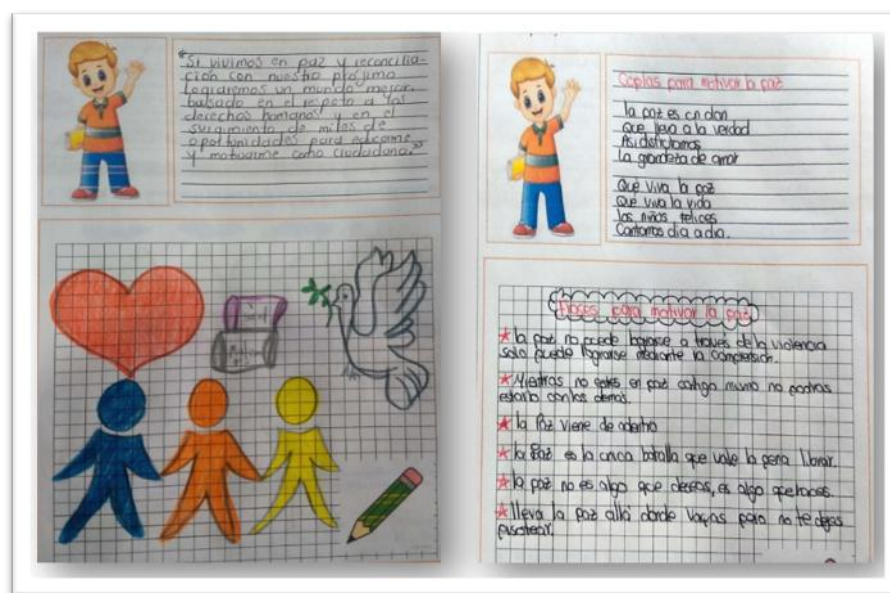 "Si vivimos en paz y reconcilia-
ción con nuestro prójimo
lograremos un mundo mejor,
basado en el respeto a los
derechos humanos y en el
surgimiento de miles de
oportunidades para educarme
y motivarme como ciudadano."
Coplas para motivar la paz
la paz es un don
Que lleva a la verdad
Asi disfrutamos
La grandeza de amar
Que viva la paz
Que viva la vida
los niños felices
Cantamos dia a dia.
Frases para motivar la paz
* la paz no puede lograrse a traves de la violencia
solo puede lograrse mediante la comprensión.
* Mientras no estes en paz contigo mismo no podras
estarlo con los demas.
* la Paz viene de adentro
* la Paz es la unica batalla que vale la pena librar.
* la paz no es algo que deseas, es algo que haces.
* lleva la paz allí donde vayas pero no te dejes
pisotear.